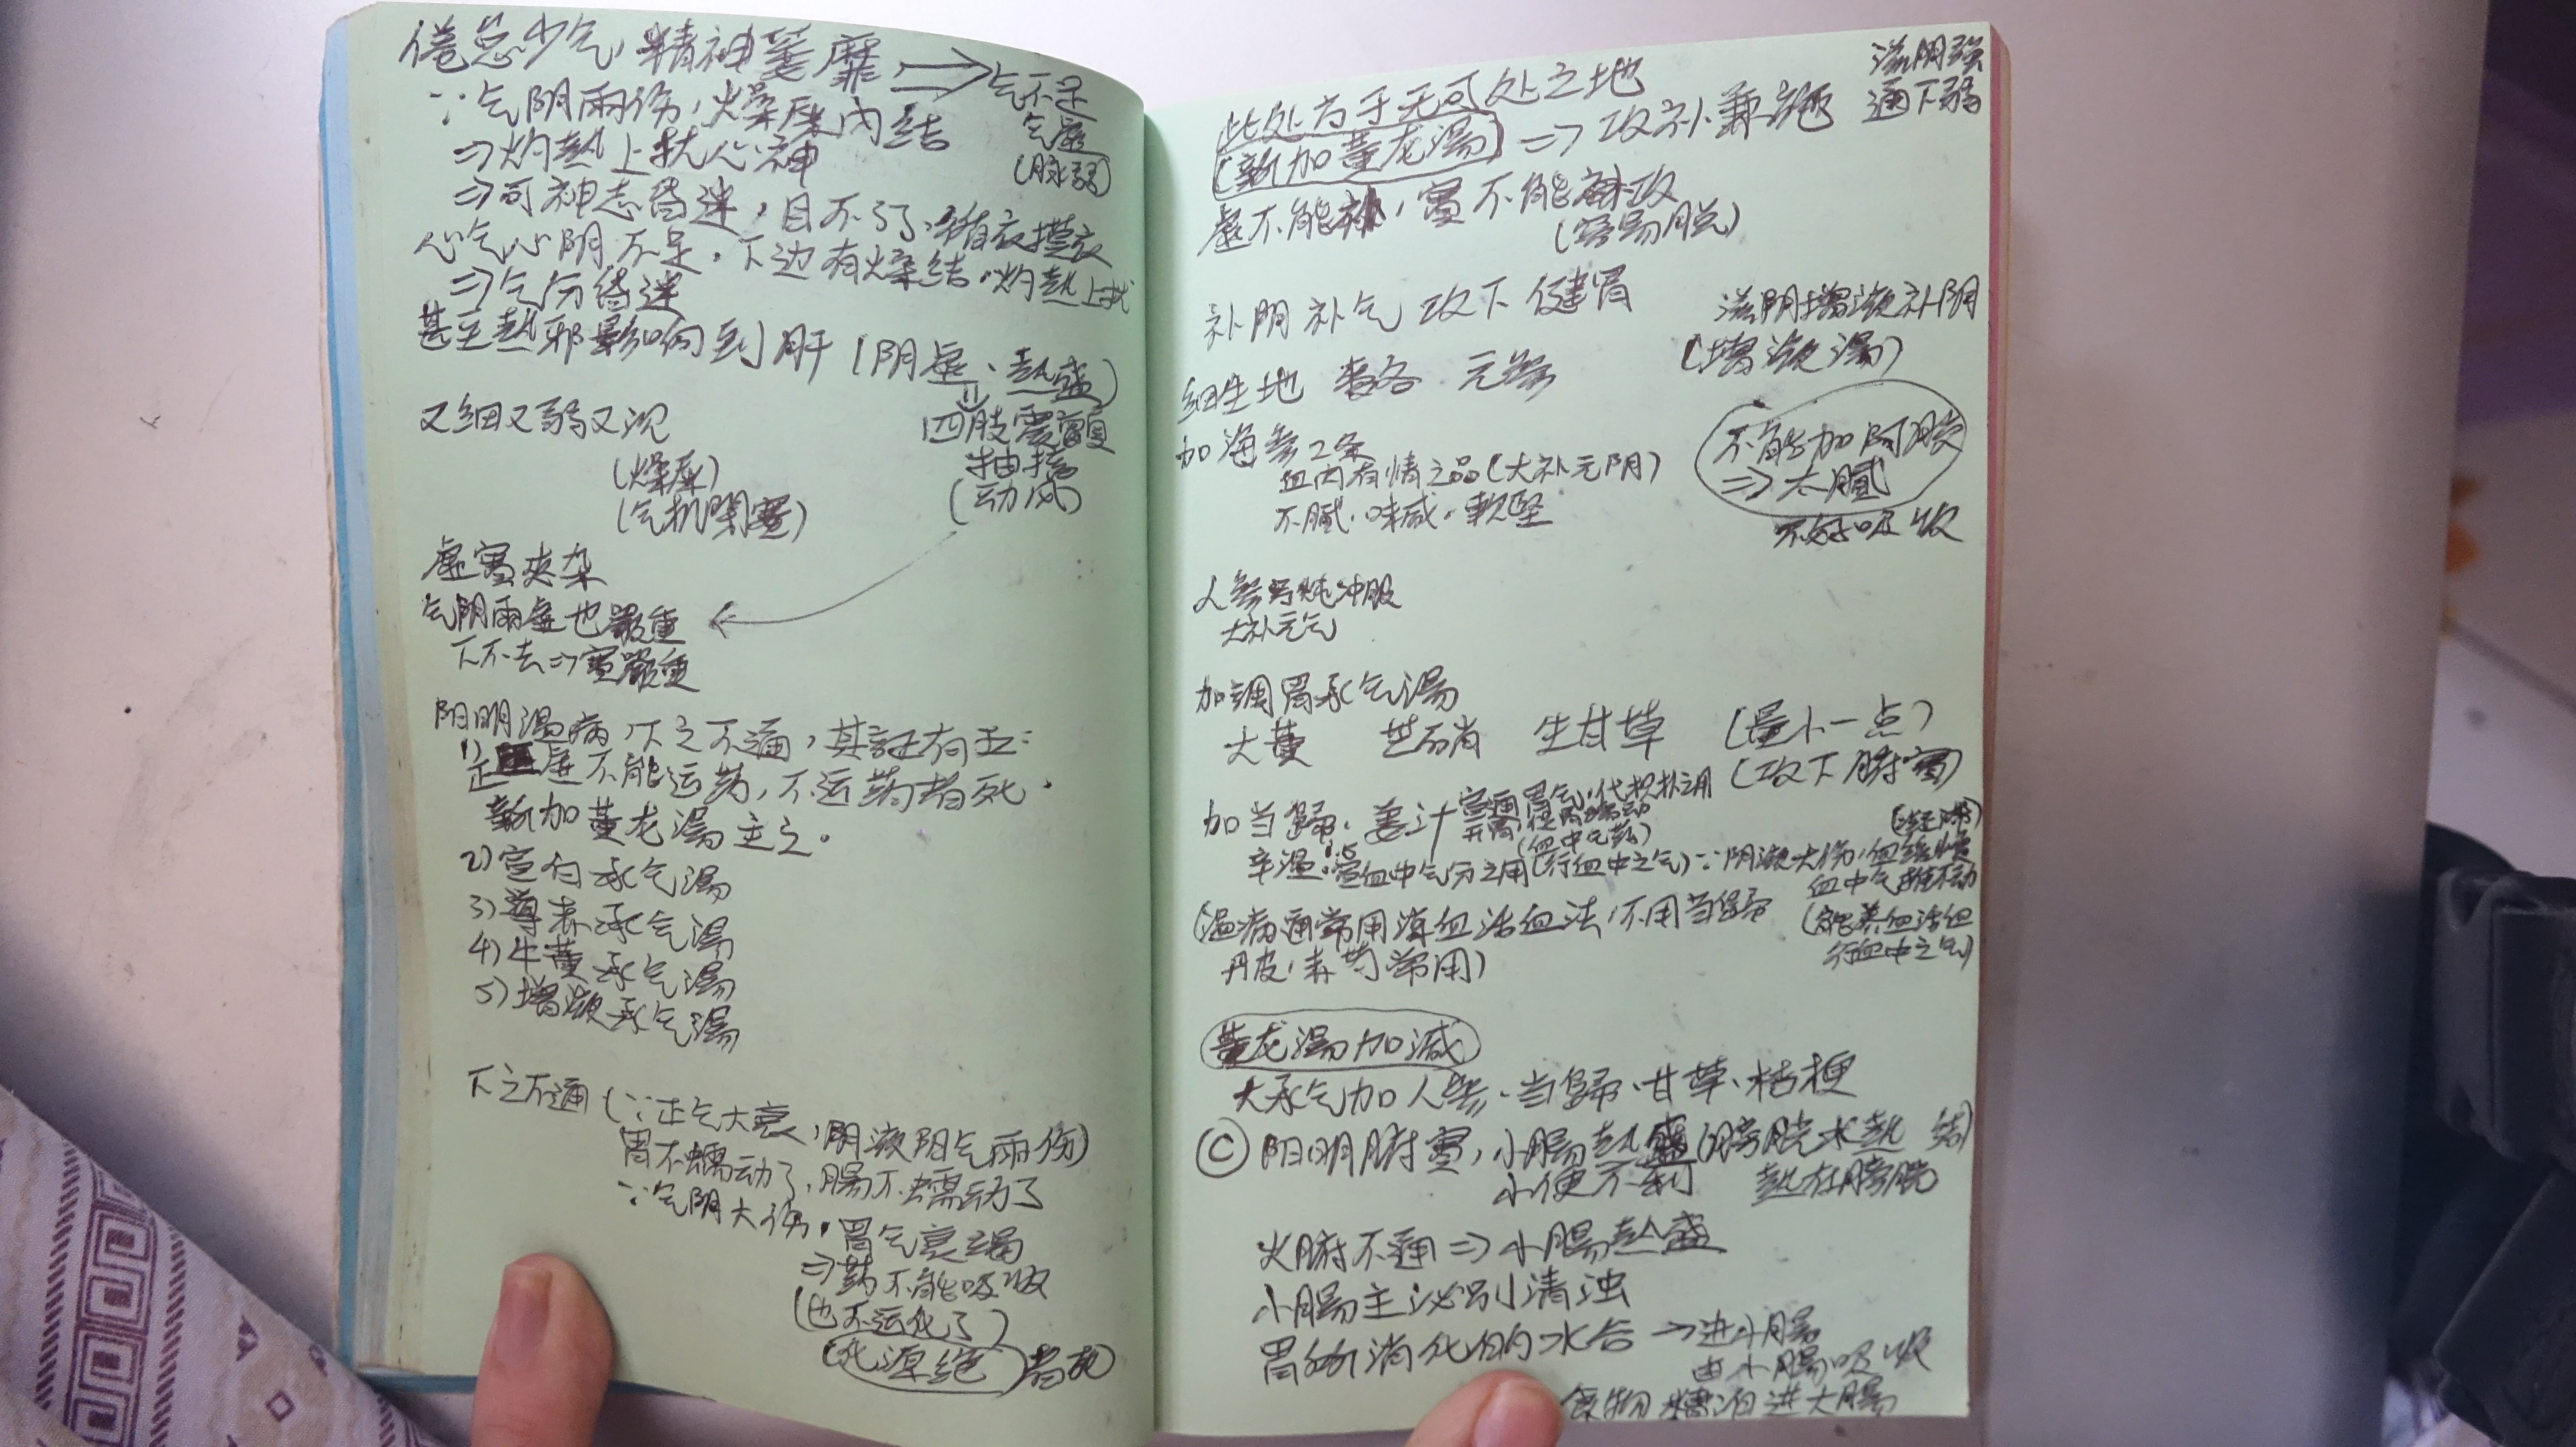 倦怠少气，精神萎靡 ⟹ 气不足
气虚
(脉弱)
∵气阴兩伤，燥屎内结
⇒灼熱上扰心神
⇒可神志昏迷，目不了了
心气心阴不足，下边有燥结，灼熱上扰
⇒气分昏迷
甚至熱邪影响到肝(阴虚、熱盛)
⇓
四肢震颤
抽搐
(动风)
又细又弱又沉
(燥屎)
(气机閉塞)
虚實夾杂
气阴兩虚也嚴重
下不去⇒實嚴重
阳明溫病，下之不通，其証有五：
1)正虚不能运药，不运药者死，
新加黄龙湯主之。
2)宣白承气湯
3)導赤承气湯
4)牛黄承气湯
5)增液承气湯
下之不通(∵正气大衰，阴液阳气兩伤)
胃不蠕动了，腸不蠕动了
∵气阴大伤，胃气衰竭
⇒药不能吸收
(也不运化了)
(化源绝)者死
滋阴强
通下弱
此处方于无可处之地
(新加黄龙湯)⇒攻补兼施
虚不能补，實不能攻
(容易脱)
补阴补气 攻下 健胃
滋阴增液补阴
(增液湯)
细生地 麦冬 元参
加海参2条
血肉有情之品(大补元阴)
不腻，味咸，軟堅
不能加阿胶
⇒太腻
不好吸收
人参另炖冲服
大补元气
加調胃承气湯
大黄 芒硝 生甘草 (量小一点)
(攻下腑實)
加当歸、姜汁 宣通胃气，代枳朴之用
开胃，使胃蠕动
(血中气药)
辛溫 宣血中气分之用(行血中之气)∵阴液大伤，血缓慢
血中气推不动
(溫病通常用涼血活血法，不用当归
丹皮，赤芍常用)
养血活血
行血中之气)
黄龙湯加減
大承气加人参、当歸、甘草、桔梗
Ⓒ阳明腑實，小腸熱盛(膀胱水熱結)
小便不利 熱在膀胱
火腑不通⇒小腸熱盛
小腸主泌别清浊
胃消化的水谷→进小腸
由小腸吸收
食物糟泊进大腸